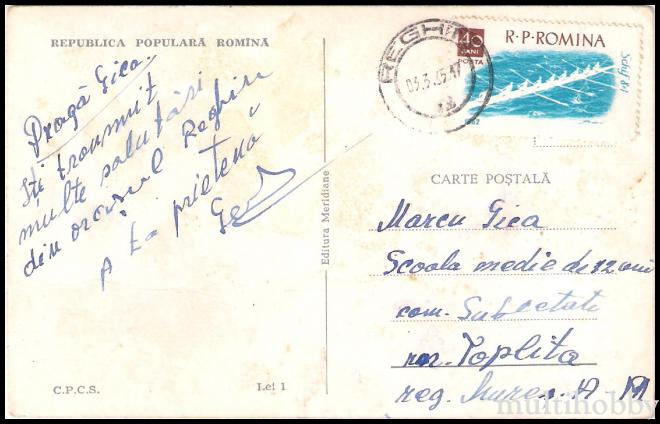 REPUBLICA POPULARĂ ROMÎNĂ
Dragă Gica.
Îți transmit
multe salutări
din orașul Reghin
A ta prietenă
C.P.C.S.
Lei 1
Editura Meridiane
REGHIN
40
BANI
POSTA
R·P·ROMINA
Schif 8+1
CARTE POȘTALĂ
Marcu Gica
Scoala medie de 12 ani
com. Subcetate
Toplita
reg. Mureș. A. M
multihobby